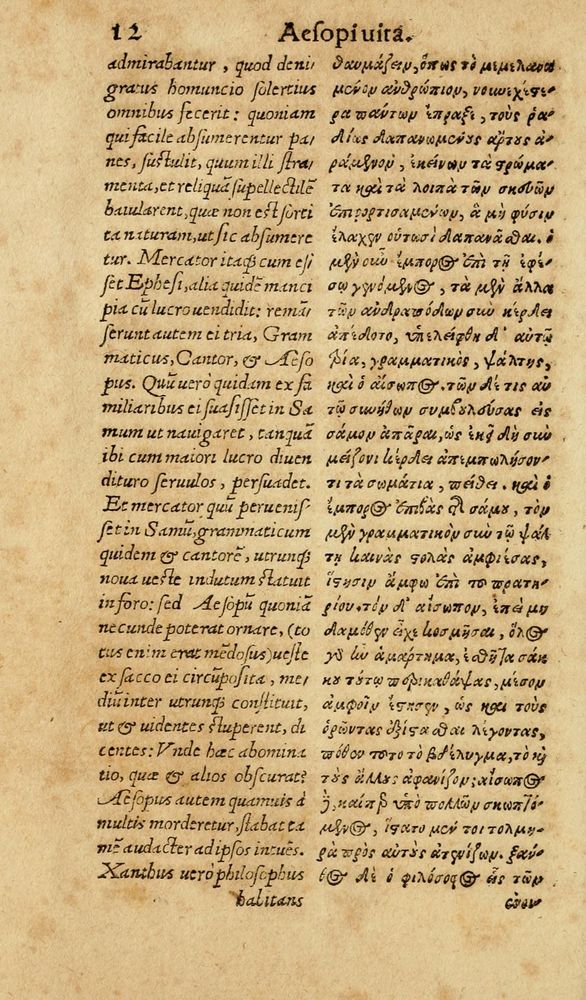 12 Aesopi uita.
admirabantur, quod deni/
gratus homuncio solertius
omnibus fecerit: quoniam
qui facile absumerentur pa/
nes, sustulit, quum illi stra/
menta, et reliquã supellectilẽ
baiularent, quæ non est sorti
ta naturam, ut sic absumere
tur. Mercator itaq; cum es/
set Ephesi, alia quidẽ manci
pia cũ lucro uendidit: remã/
serunt autem ei tria, Gram
maticus, Cantor, & Aeso
pus. Quũ uerò quidam ex fa
miliaribus ei suasisset in Sa
mum ut nauigaret, tanquã
ibi cum maiori lucro diuen
dituro seruulos, persuadet.
Et mercator quũ peruenis/
set in Samũ, grammaticum
quidem & cantorẽ, utrunq;
noua ueste indutum statuit
in foro: sed Aesopũ quoniã
necunde poterat ornare, (to
tus enim erat mẽdosus) ueste
ex sacco ei circũposita, me/
diũ inter utrunq; constituit,
ut & uidentes stuperent, di
centes: Vnde hæc abomina
tio, quæ & alios obscurat?
Aesopus autem quamuis à
multis morderetur, stabat ta
mẽ audacter ad ipsos intuẽs.
Xanthus uerò philosophus
halitans
θαυμάζειν, ὅπως τὸ μεμελανω
μένον ἀνθρώπιον, νουνεχέστε/
ρα πάντων ἔπραξε, τοὺς ῥα/
δίως δαπανωμένους ἄρτους ἀ/
ράμενον, ἐκείνων τὰ στρώμα/
τα καὶ τὰ λοιπὰ τῶν σκευῶν
ἐπιφορτισαμένων, ἃ μὴ φύσιν
ἔλαχεν οὑτωσὶ δαπανᾶσθαι. ὁ
μὲν οὖν ἔμπορος ἐπὶ τῇ ἐφέ/
σῳ γενόμενος, τὰ μὲν ἄλλα
τῶν ἀνδραπόδων σὺν κέρδει
ἀπέδοτο, ὑπελείφθη δ' αὐτῷ
τρία, γραμματικὸς, ψάλτης,
καὶ ὁ αἴσωπος. τῶν δέ τις αὐ
τῷ συνήθων συμβουλεύσας εἰς
σάμον ἀπᾶραι, ὡς ἐκεῖ δὴ σὺν
μείζονι κέρδει ἀπεμπωλήσον/
τι τὰ σωμάτια, πείθει. καὶ ὁ
ἔμπορος ἐπιβὰς τῆς σάμου, τὸν
μὲν γραμματικὸν σὺν τῷ ψάλ
τῃ καινὰς στολὰς ἀμφιέσας,
ἵστησιν ἄμφω ἐπὶ τοῦ πρατη/
ρίου. τὸν δ' αἴσωπον, ἐπεὶ μη
δαμόθεν εἶχε κοσμῆσαι, ὅλος
γὰρ ἦν ἁμάρτημα, ἐσθῆτα σάκ
κου τούτῳ περικαθάψας, μέσον
ἀμφοῖν ἔστησεν, ὡς καὶ τοὺς
ὁρῶντας ἐξίστασθαι λέγοντας,
πόθεν τοῦτο τὸ βδέλυγμα, τὸ καὶ
τοὺς ἄλλους ἀφανίζον; αἴσωπος
δὲ, καίπερ ὑπὸ πολλῶν σκωπτό/
μενος, ἵστατο μέν τοι τολμη/
ρὰ πρὸς αὐτοὺς ἀτενίζων. ξάν/
θος δὲ ὁ φιλόσοφος εἷς τῶν